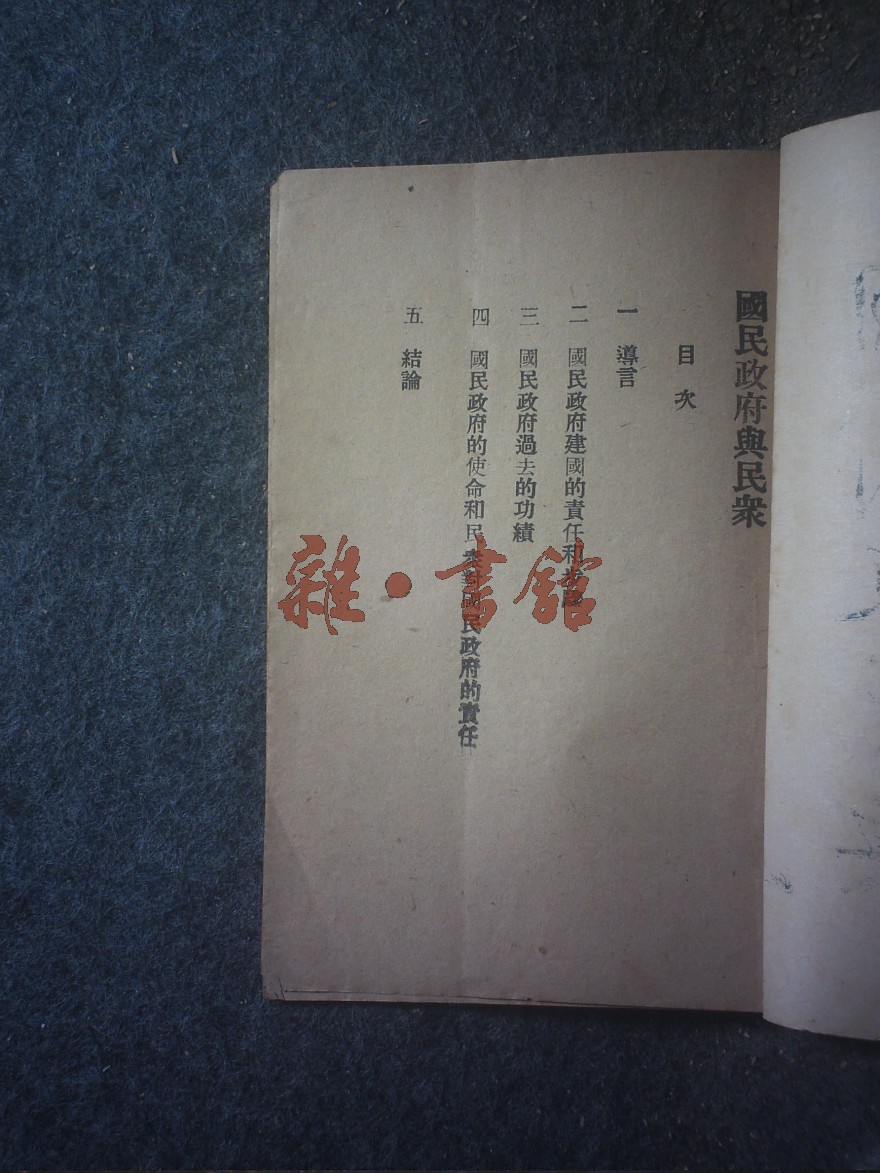 國民政府與民衆
目次
一 導言
二 國民政府建國的責任和步驟
三 國民政府過去的功績
四 國民政府的使命和民衆對國民政府的責任
五 結論
雜·書館